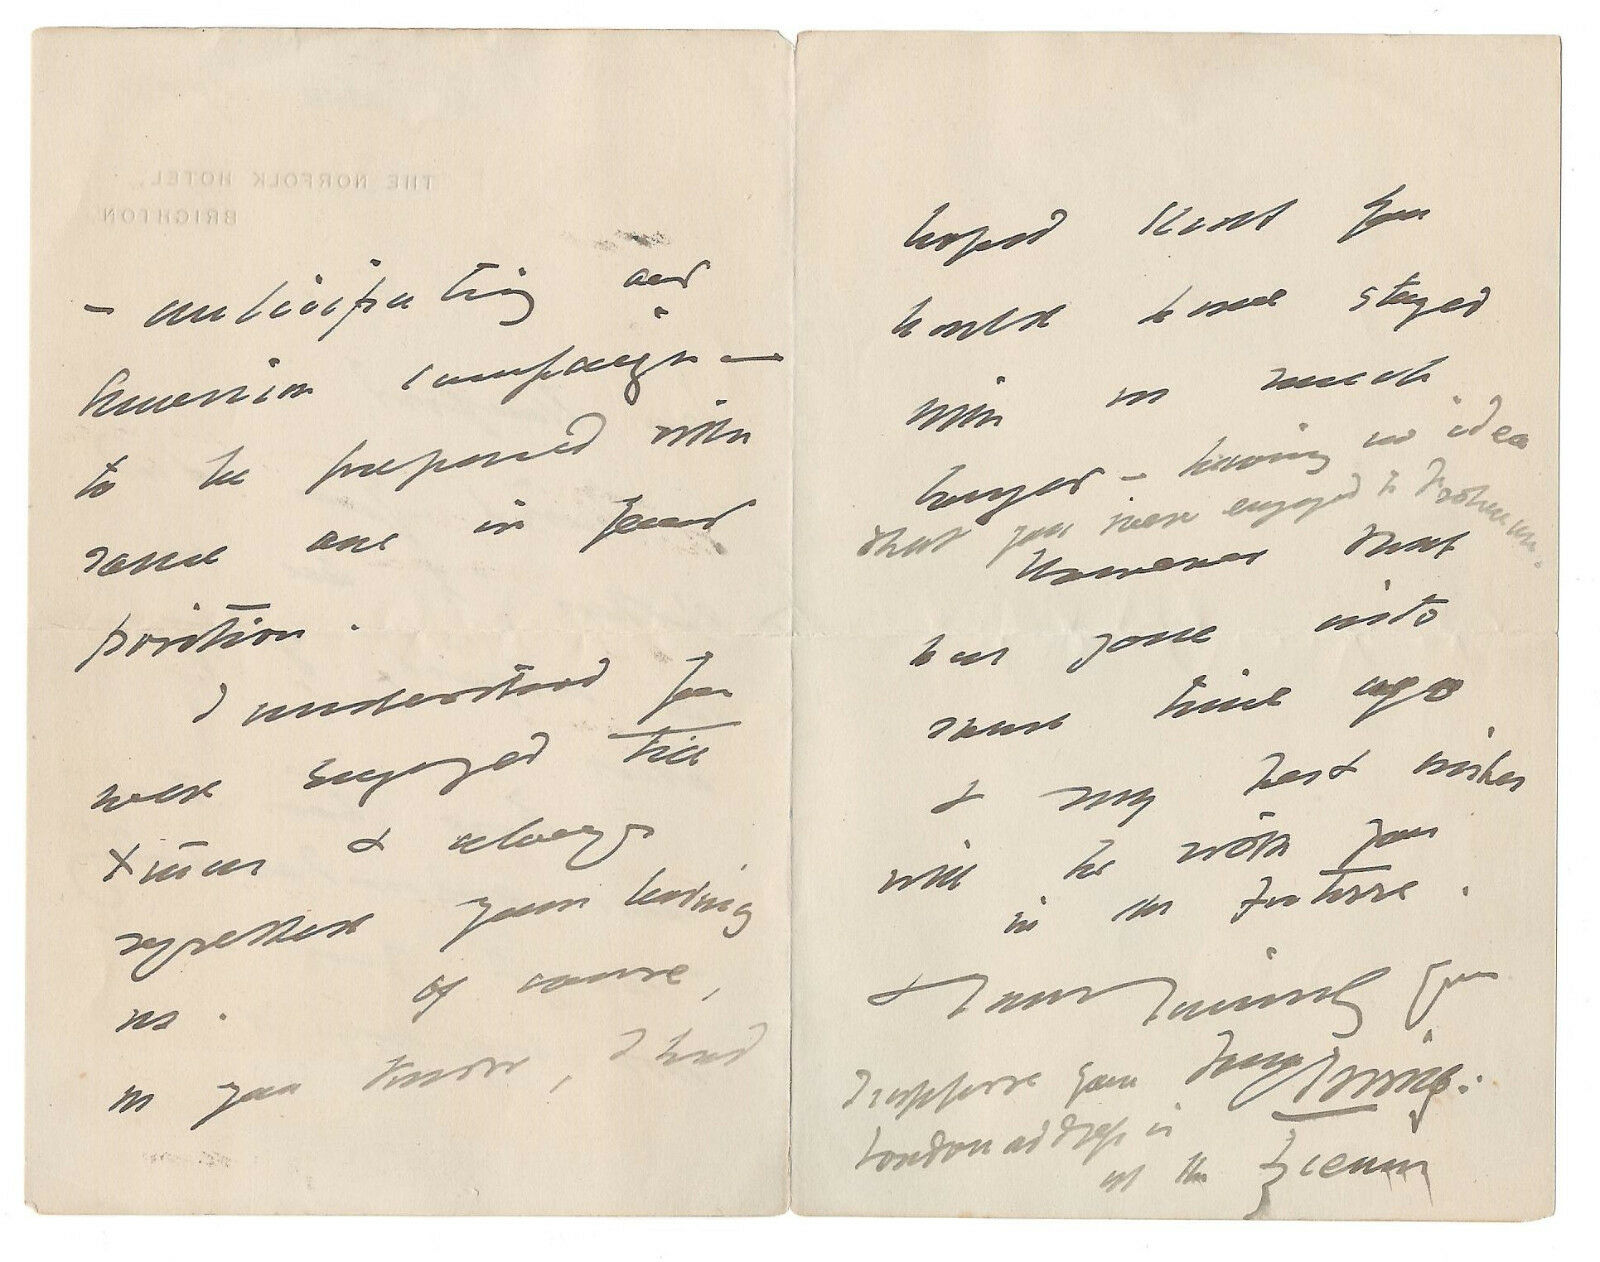 THE NORFOLK HOTEL,
BRIGHTON.
- anticipating our
American campaign —
to be prepared with
some one in your
position.
I understood you
were engaged till
Xmas & always
regretted your leaving
us. Of course,
as you know, I had
hoped that you
would have stayed
with us much
longer - having no idea
that you were engaged to
However that
has gone into
some time ago
& my best wishes
will be with you
in the future.
I am Sincerely Yrs
Henry Irving.
I suppose your
London address is
at the